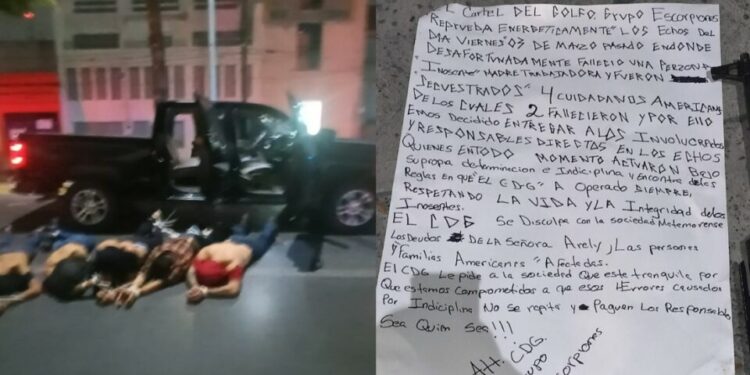 L Cartel DEL GOLFO, GRUPO ESCORPIONES
REPRUEBA ENERGETICAMENTE" LOS ECHOS DEL
DIA VIERNES" 03 DE MARZO PASADO ENDONDE
DESAFORTUNADAMENTE FALLECIO UNA PERZONA
INOSENTE" MADRE TRABAJADORA Y FUERON
SECUESTRADOS" 4 CUIDADANOS AMERICANOS
DE LOS CUALES 2 FALLECIERON Y POR ELLO
EMOS DECIDIDO ENTREGAR A LOS INVOLUCRADOS
Y RESPONSABLES DIRECTOS EN LOS ECHOS
QUIENES EN TODO MOMENTO ACTUARON BAJO
SU PROPIA determinacion e Indiciplina y Encontra de las
Reglas en QUE EL CDG" A Operado SIEMPRE,
RESPETANDO LA VIDA Y LA Integridad de los
INOSENTES.
EL CDG SE Disculpa con la sociedad Matamorense
Los Deudos DE LA Señora Arely, y Las personas
y Familias Americans "Afectadas.
El CDG Le pide a la sociedad Que este tranquila por
Que estamos Comprometidos a que esos "Errores causados
Por Indiciplina No se repita y Paguen Los Responsables
Sea Quien Sea!!!
Att. CDG.
Grupo
Escorpiones